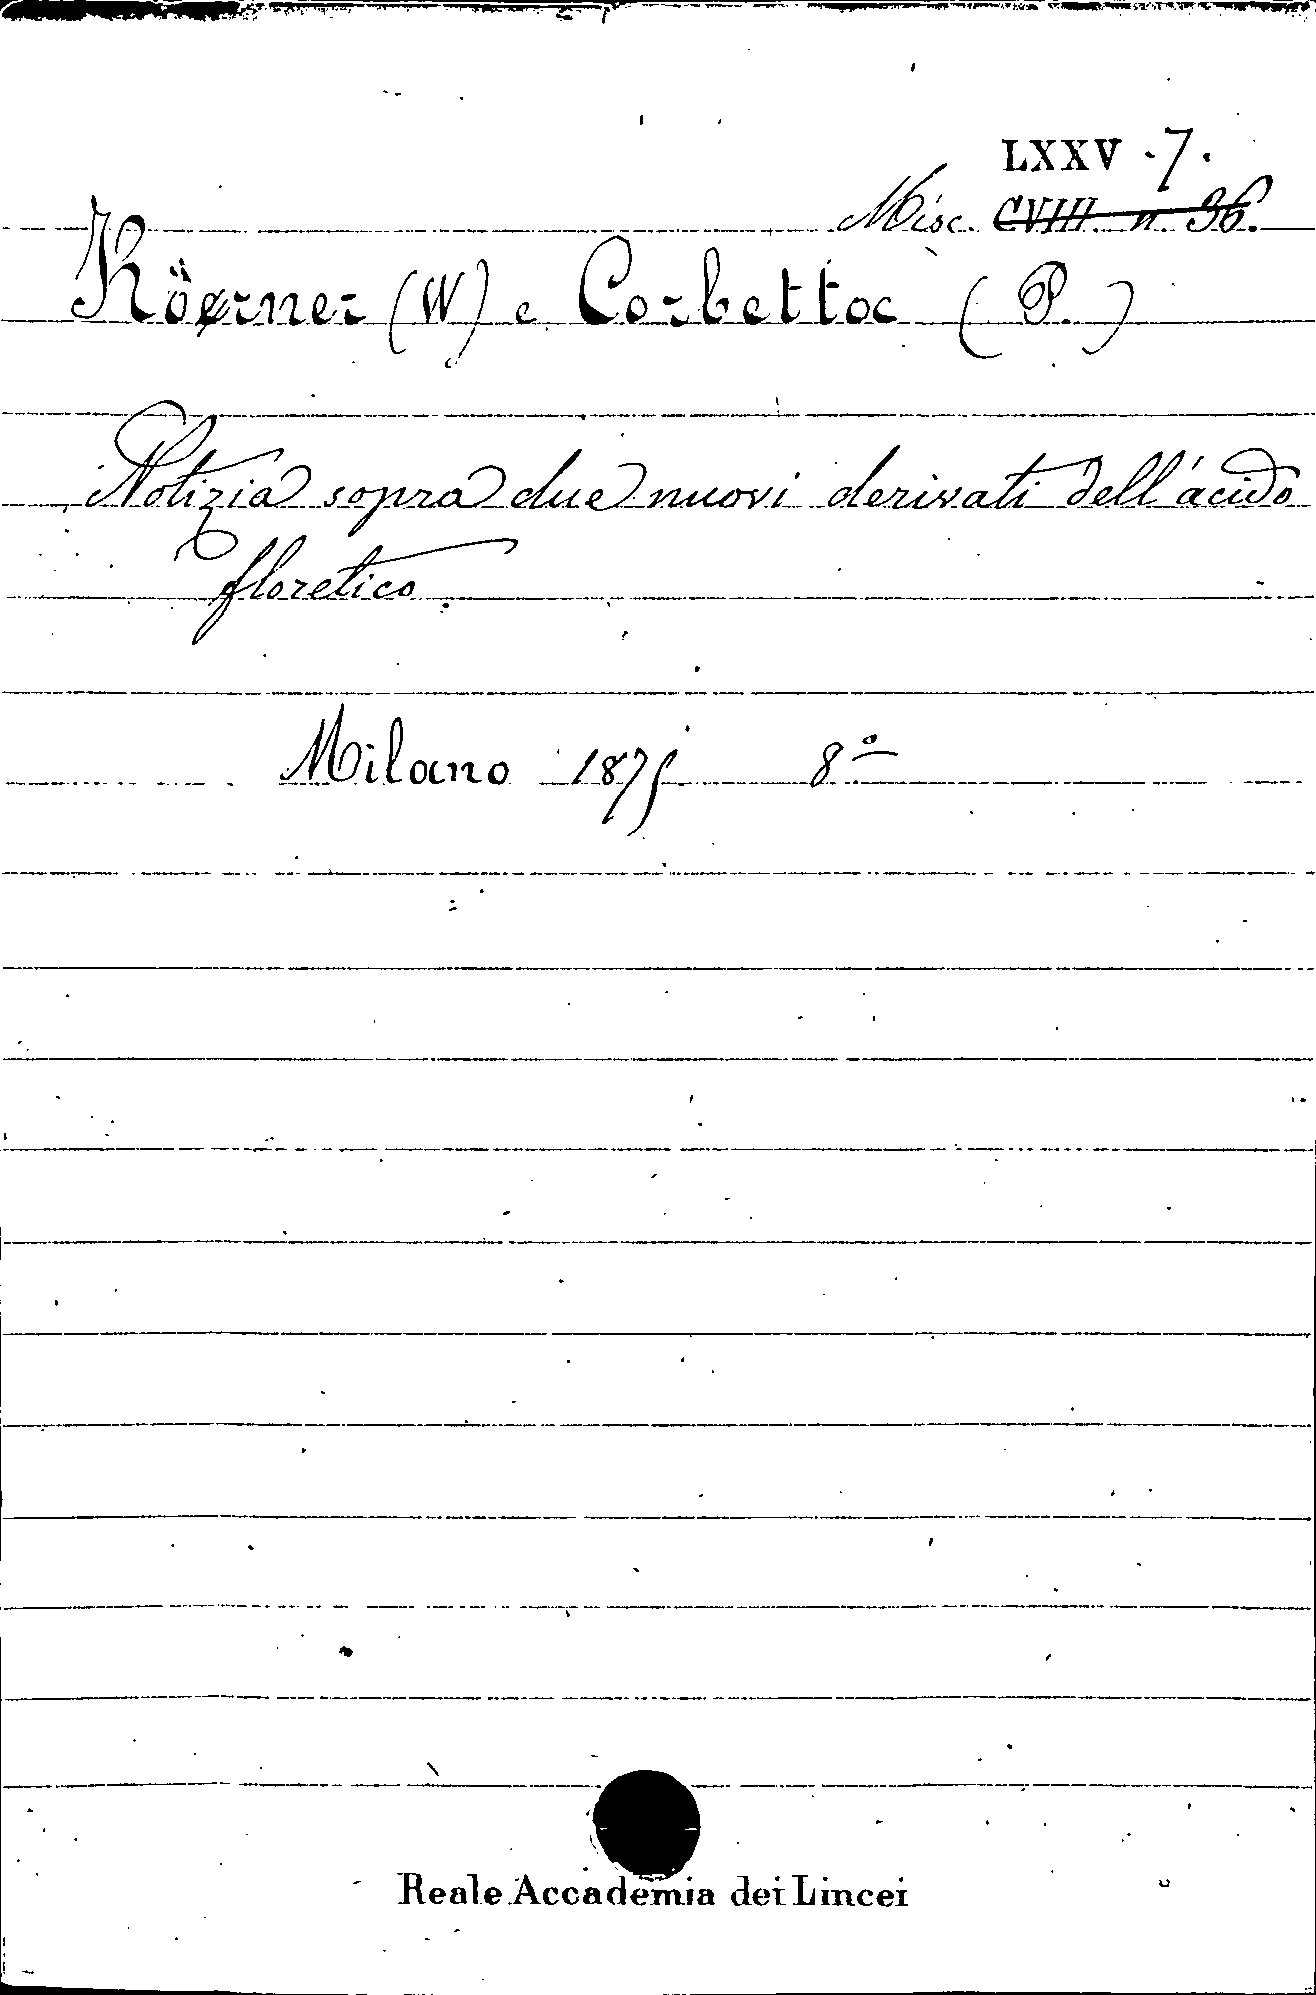 LXXV . 7 .
Misc. CVIII n. 36.
Körner (W) e Corbetta (P.)
Notizia sopra due nuovi derivati dell'acido
floretico
Milano 1875 8º
Reale Accademia dei Lincei